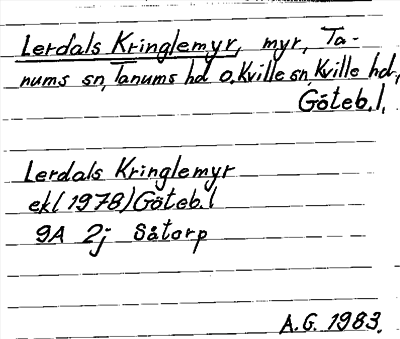 Lerdals Kringlemyr, myr, Ta-
nums sn, Tanums hd o. Kville sn, Kville hd,
Göteb.l.
Lerdals Kringlemyr
ekl (1978) Göteb.l
9A 2j Såtorp
A.G. 1983.